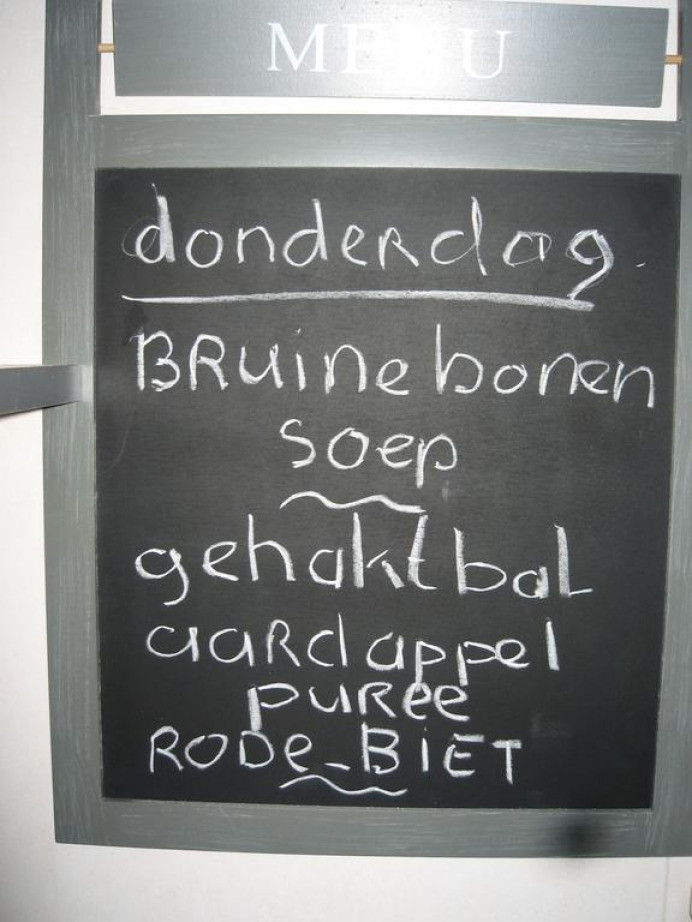 MENU
donderdag.
BRuine bonen
soep
gehaktbal
aaRdappel
puRee
RODe-BiET